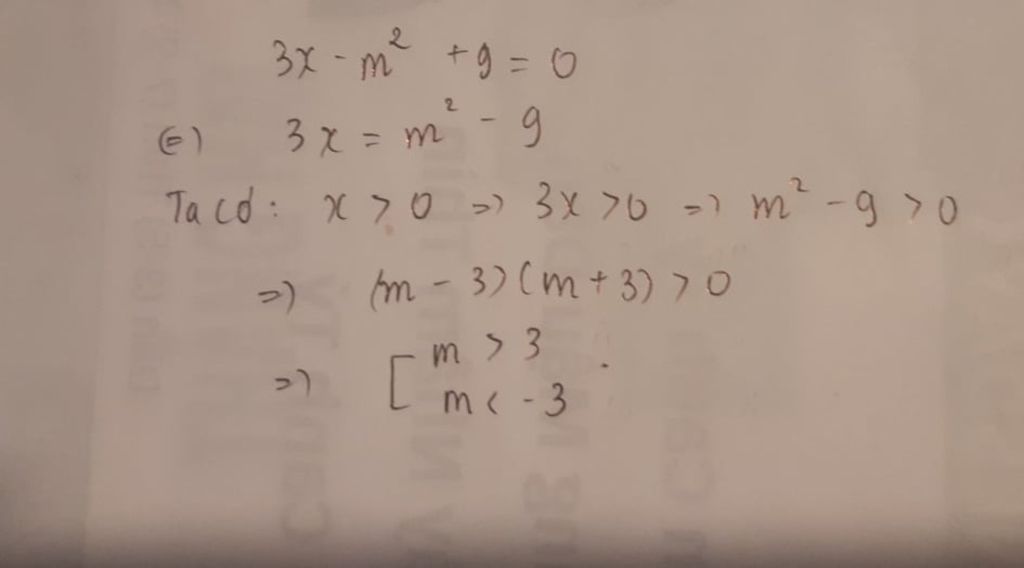 3x - m² + 9 = 0
(=) 3x = m² - 9
Ta cd: x > 0 => 3x > 0 => m² - 9 > 0
=> (m - 3)(m + 3) > 0
=> [ m > 3
m < -3 .